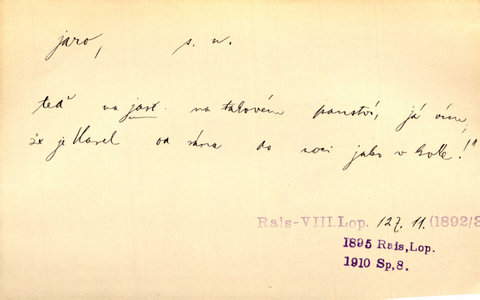 jaro, s. n.
teď na jaře na takovém panství, já vím,
že je Karel od rána do noci jako v kole!"
Rais-VIII.Lop. 127. 11. (1892/3
1895 Rais,Lop.
1910 Sp,8.